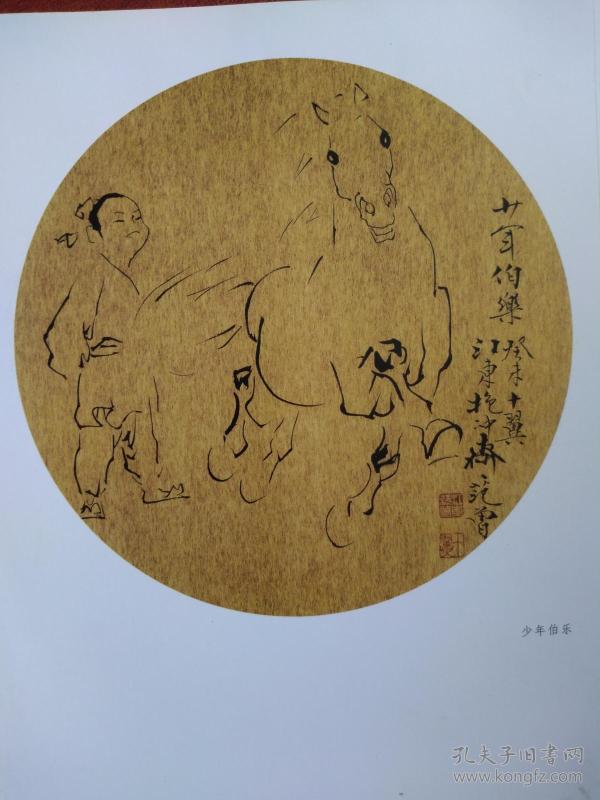 少年伯樂
癸未十翼
江東抱沖齋
范曾
少年伯乐
孔夫子旧书网
www.kongfz.com